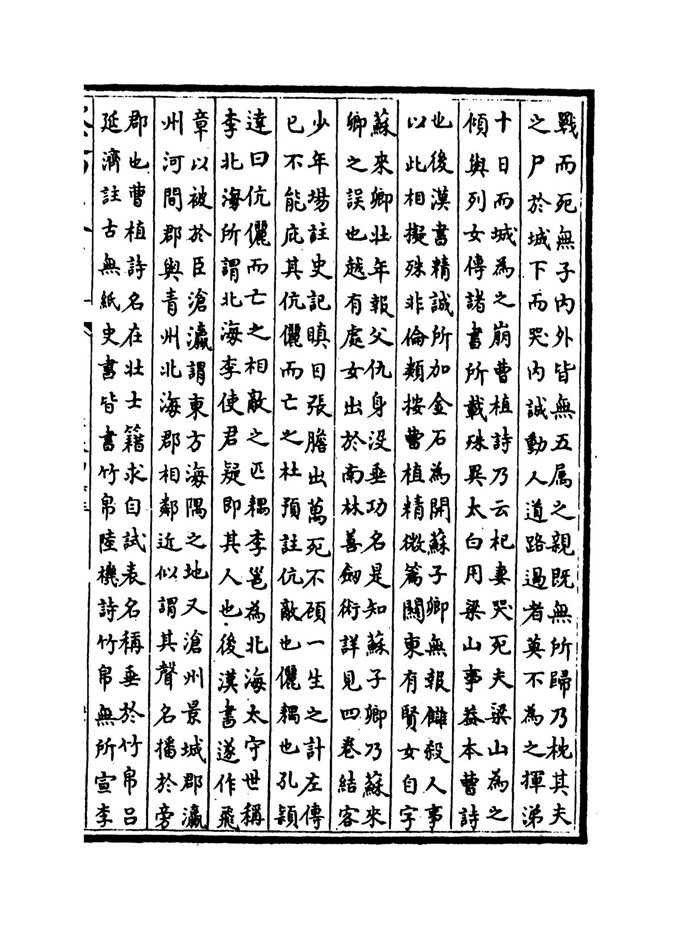 戰而死無子内外皆無五属之親既無所歸乃枕其夫
之尸於城下而哭内誠動人道路過者莫不為之揮涕
十日而城為之崩曹植詩乃云杞妻哭死夫梁山為之
傾與列女傳諸書所載殊異太白用梁山事葢本曹詩
也後漢書精誠所加金石為開蘇子卿無報讎殺人事
以此相擬殊非倫類按曹植精微篇關東有賢女自字
蘇來卿壯年報父仇身沒垂功名是知蘇子卿乃蘇來
卿之誤也越有處女出於南林善劍術詳見四卷結客
少年場註史記瞋目張膽出萬死不顧一生之計左傳
已不能庇其伉儷而亡之杜預註伉敵也儷耦也孔頴
達曰伉儷而亡之相敵之匹耦李邕為北海太守世稱
李北海所謂北海李使君疑即其人也後漢書遂作飛
章以被於臣滄瀛謂東方海隅之地又滄州景城郡瀛
州河間郡與青州北海郡相鄰近似謂其聲名播於旁
郡也曹植詩名在壮士籍求自試表名稱垂於竹帛吕
延濟註古無紙史書皆書竹帛陸機詩竹帛無所宣李